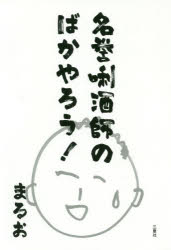 名誉唎酒師の
ばかやろう!
まるお